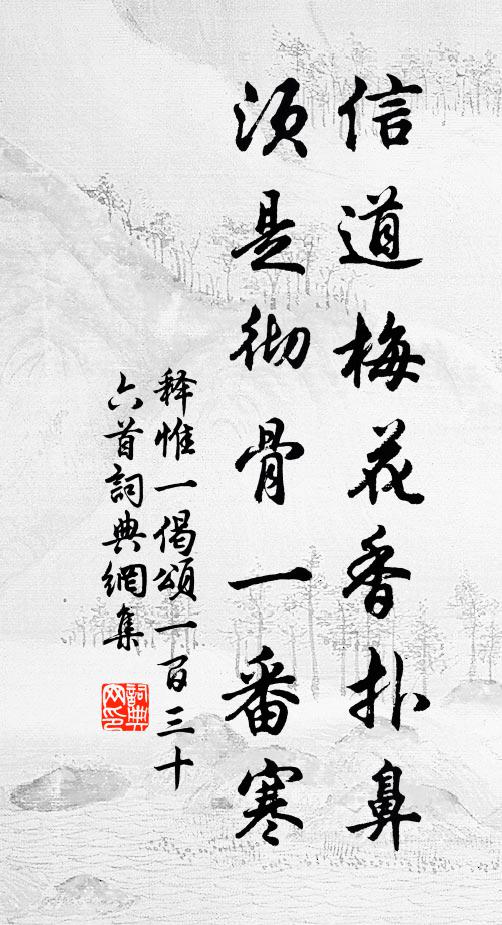 信道梅花香扑鼻
须是彻骨一番寒
释惟一偈頌一百三十
六首詞典網集
詞典
网印